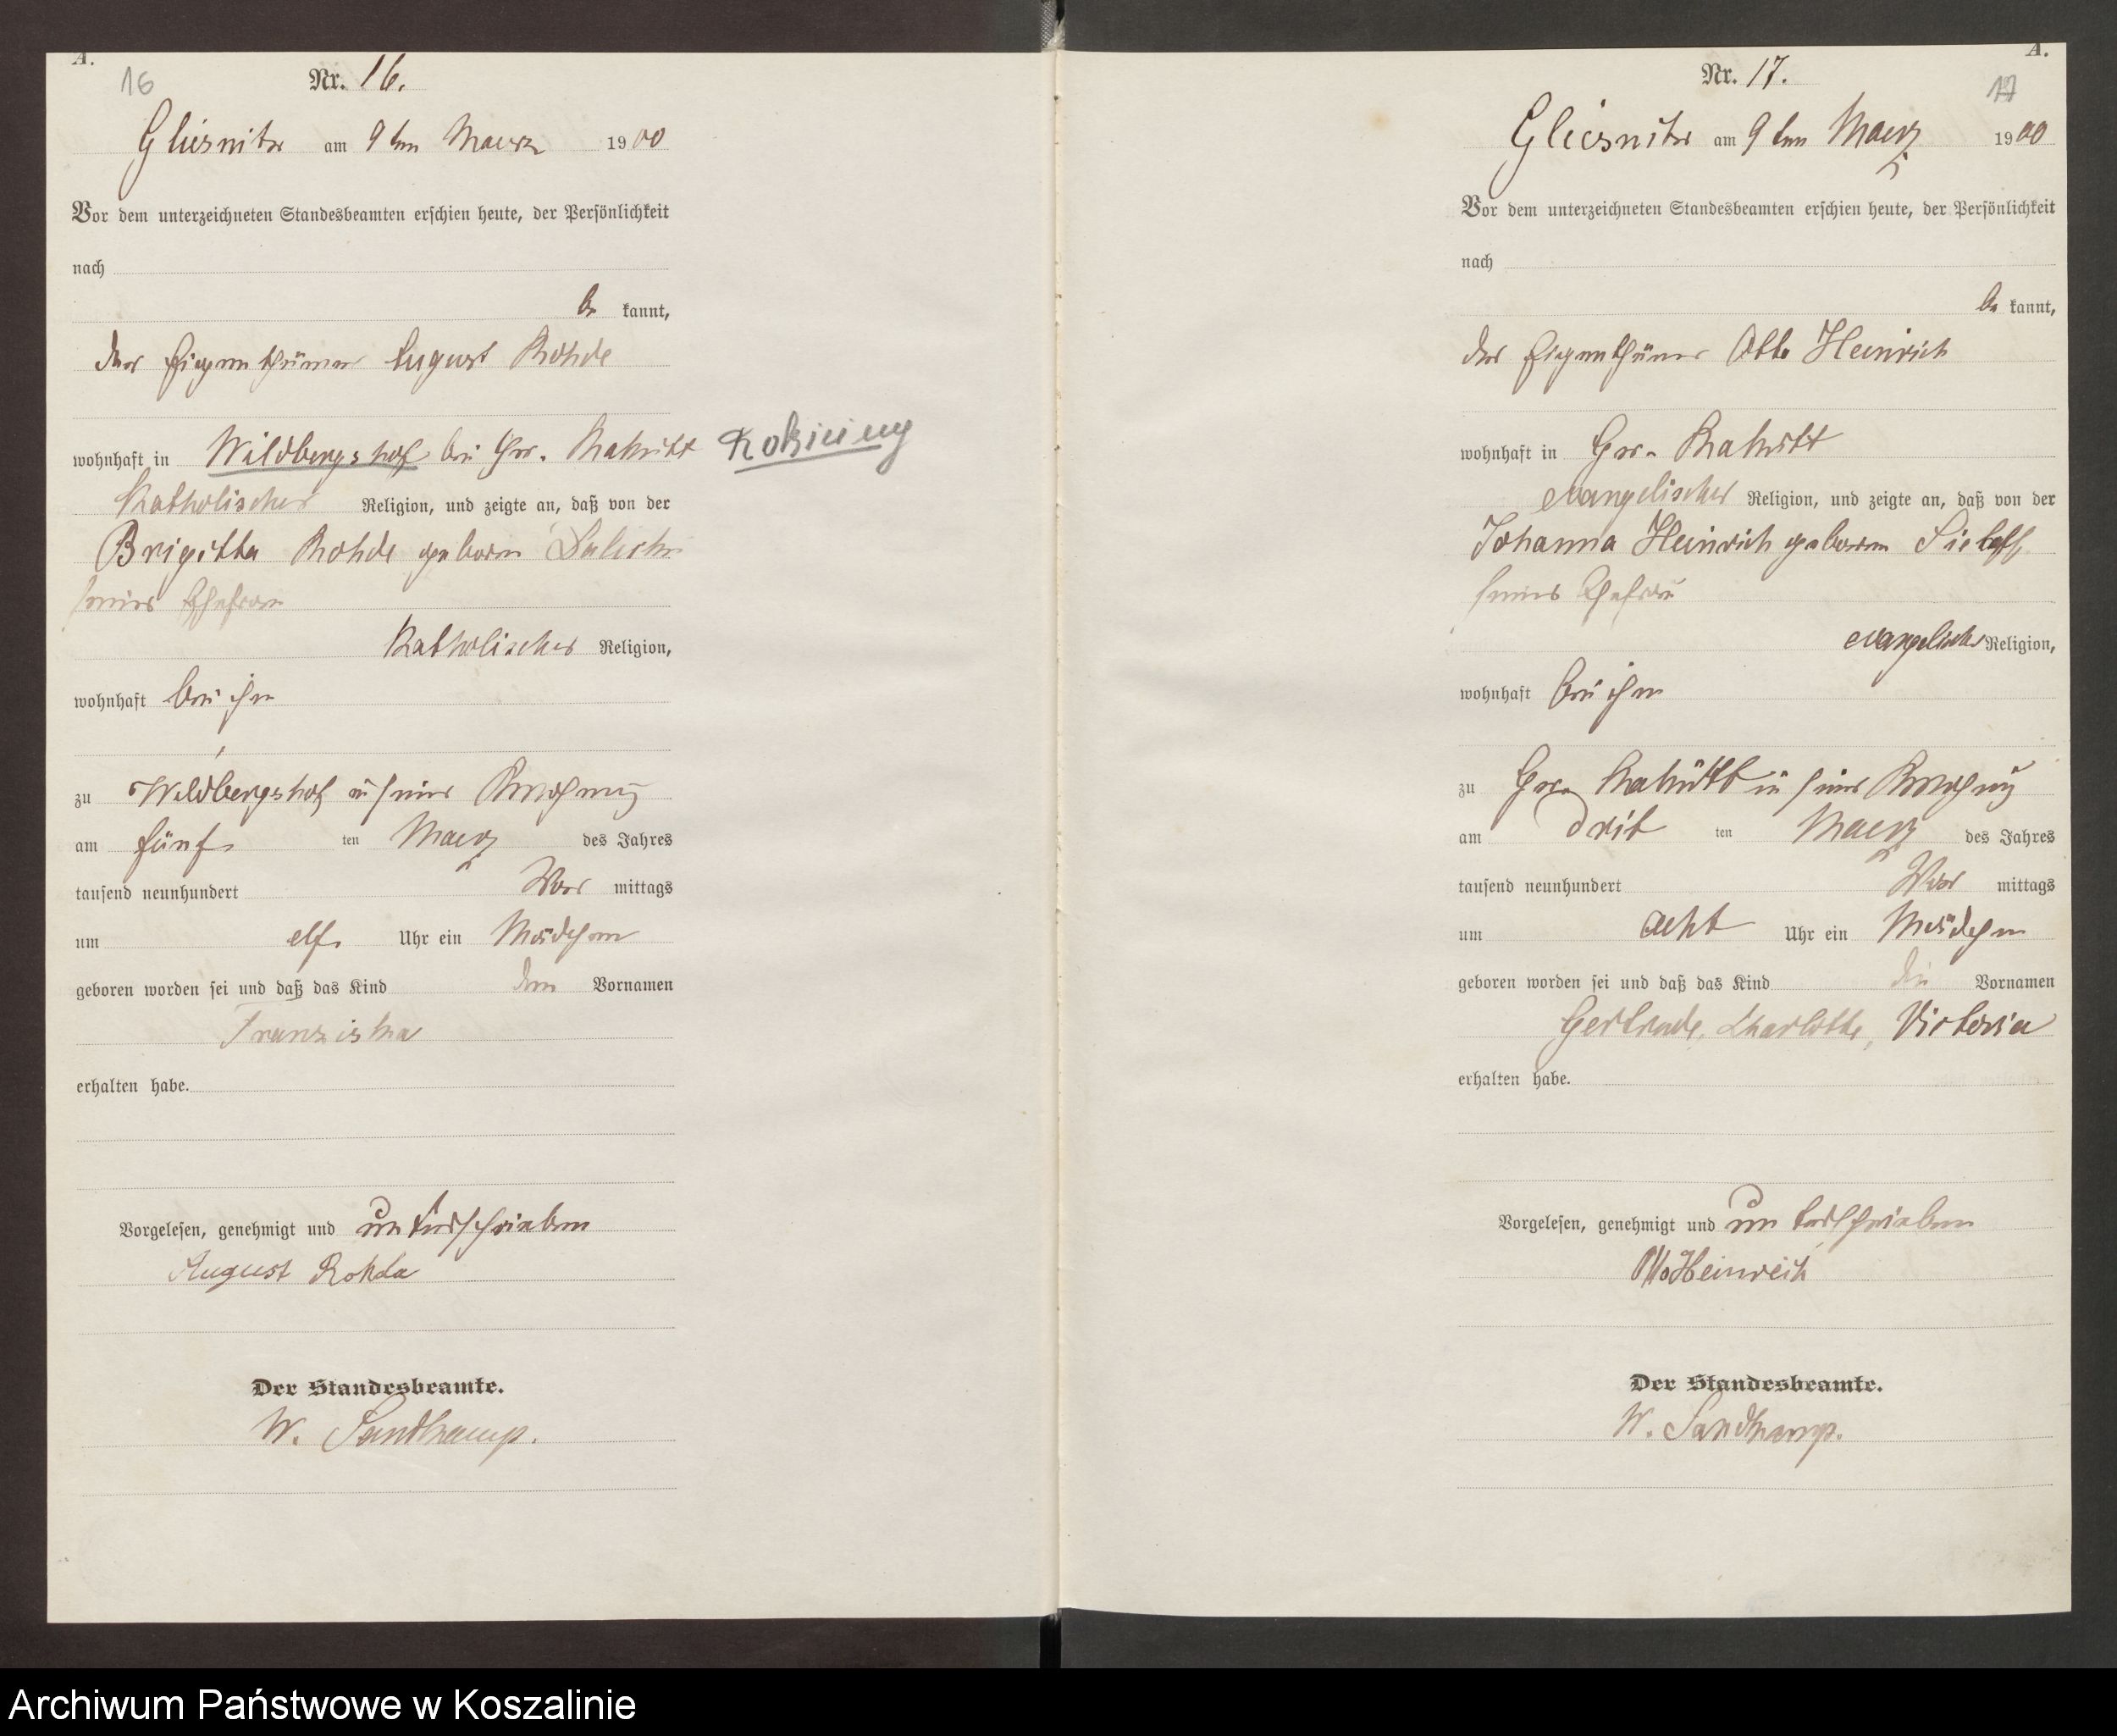 A.
16
Nr. 16.
Gliesnitz am 9ten Maerz 1900
Vor dem unterzeichneten Standesbeamten erschien heute, der Persönlichkeit
nach
be kannt,
der Eigenthümer August Rohde
wohnhaft in Wildbergshof bei Gr.
Katholischer Religion, und zeigte an, daß von der
Brigitta Rohde geboren
seiner Ehefrau
Katholischer Religion,
wohnhaft bei ihm
zu Wildbergshof in seiner Wohnung
am fünf ten Maerz des Jahres
tausend neunhundert Vor mittags
um elf Uhr ein Mädchen
geboren worden sei und daß das Kind den Vornamen
Franziska
erhalten habe.
Vorgelesen, genehmigt und unterschrieben
August Rohde
Der Standesbeamte.
W. Sandkamp.
A.
17
Nr. 17.
Gliesnitz am 9ten Maerz 1900
Vor dem unterzeichneten Standesbeamten erschien heute, der Persönlichkeit
nach
be kannt,
der Eigenthümer Otto Heinrich
wohnhaft in Gr.
evangelischer Religion, und zeigte an, daß von der
Johanna Heinrich geboren Sieloff
seiner Ehefrau
evangelischer Religion,
wohnhaft bei ihm
zu Gr. in seiner Wohnung
am drit ten Maerz des Jahres
tausend neunhundert Vor mittags
um acht Uhr ein Mädchen
geboren worden sei und daß das Kind die Vornamen
Gertrude, Charlotte, Victoria
erhalten habe.
Vorgelesen, genehmigt und unterschrieben
Otto Heinrich
Der Standesbeamte.
W. Sandkamp.
Archiwum Państwowe w Koszalinie